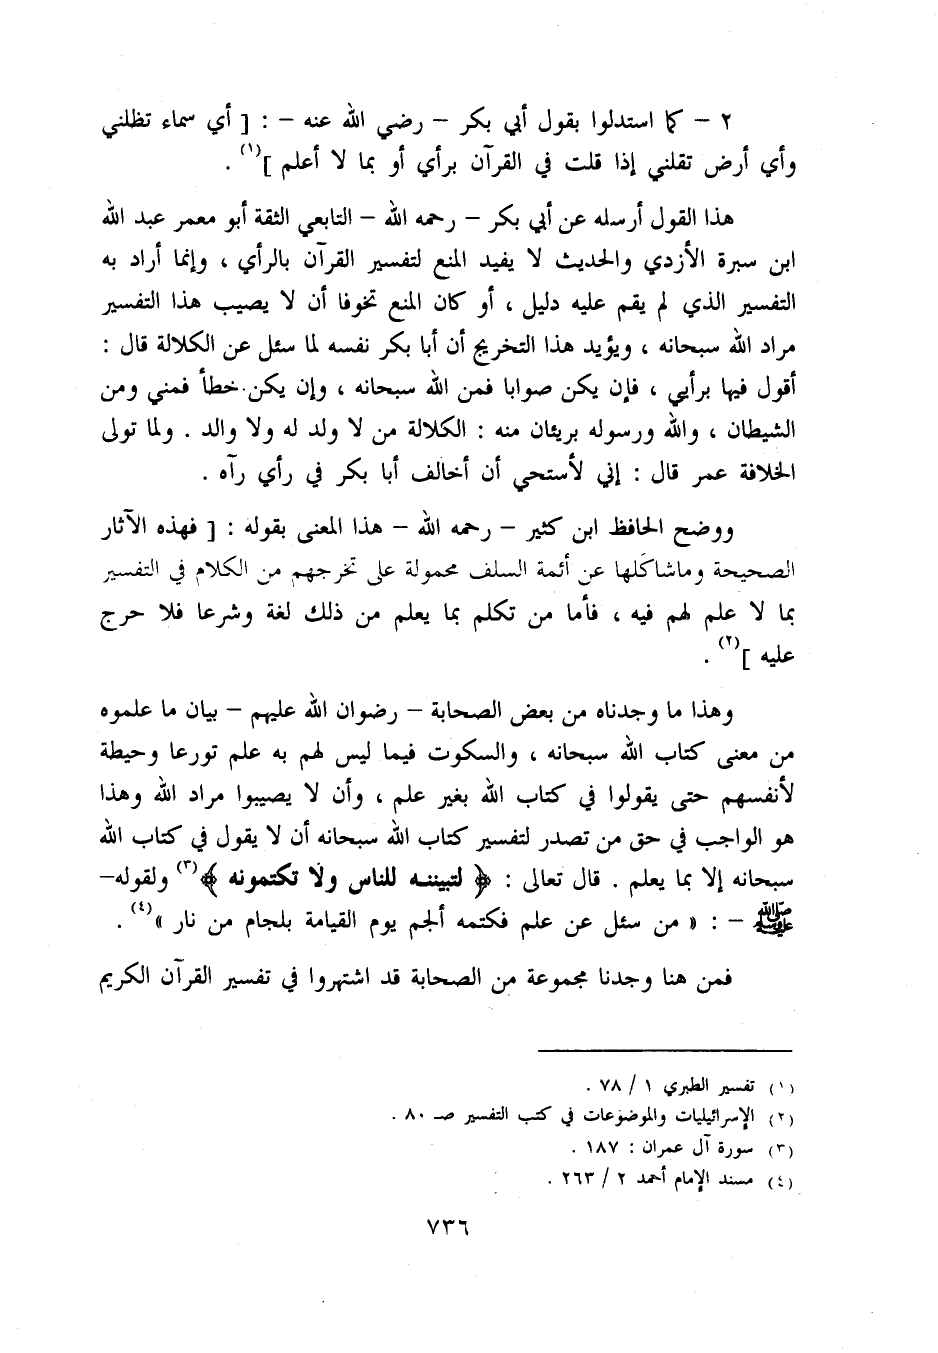 ٢ – كما استدلوا بقول أبي بكر – رضي الله عنه – : [ أي سماء تظلني
وأي أرض تقلني إذا قلت في القرآن برأي أو بما لا أعلم ](١) .
هذا القول أرسله عن أبي بكر – رحمه الله – التابعي الثقة أبو معمر عبد الله
ابن سبرة الأزدي والحديث لا يفيد المنع لتفسير القرآن بالرأي ، وإنما أراد به
التفسير الذي لم يقم عليه دليل ، أو كان المنع تخوفا أن لا يصيب هذا التفسير
مراد الله سبحانه ، ويؤيد هذا التخريج أن أبا بكر نفسه لما سئل عن الكلالة قال :
أقول فيها برأيي ، فإن يكن صوابا فمن الله سبحانه ، وإن يكن خطأ فمني ومن
الشيطان ، والله ورسوله بريئان منه : الكلالة من لا ولد له ولا والد . ولما تولى
الخلافة عمر قال : إني لأستحي أن أخالف أبا بكر في رأي رآه .
ووضح الحافظ ابن كثير – رحمه الله – هذا المعنى بقوله : [ فهذه الآثار
الصحيحة وماشاكلها عن أئمة السلف محمولة على تخرجهم من الكلام في التفسير
بما لا علم لهم فيه ، فأما من تكلم بما يعلم من ذلك لغة وشرعا فلا حرج
عليه ](٢) .
وهذا ما وجدناه من بعض الصحابة – رضوان الله عليهم – بيان ما علموه
من معنى كتاب الله سبحانه ، والسكوت فيما ليس لهم به علم تورعا وحيطة
لأنفسهم حتى يقولوا في كتاب الله بغير علم ، وأن لا يصيبوا مراد الله وهذا
هو الواجب في حق من تصدر لتفسير كتاب الله سبحانه أن لا يقول في كتاب الله
سبحانه إلا بما يعلم . قال تعالى : ﴿ لتبيننه للناس ولا تكتمونه ﴾(٣) ولقوله–
ﷺ – : « من سئل عن علم فكتمه ألجم يوم القيامة بلجام من نار »(٤) .
فمن هنا وجدنا مجموعة من الصحابة قد اشتهروا في تفسير القرآن الكريم
(١) تفسير الطبري ١ / ٧٨ .
(٢) الإسرائيليات والموضوعات في كتب التفسير صـ ٨٠ .
(٣) سورة آل عمران : ١٨٧ .
(٤) مسند الإمام أحمد ٢ / ٢٦٣ .
٧٣٦